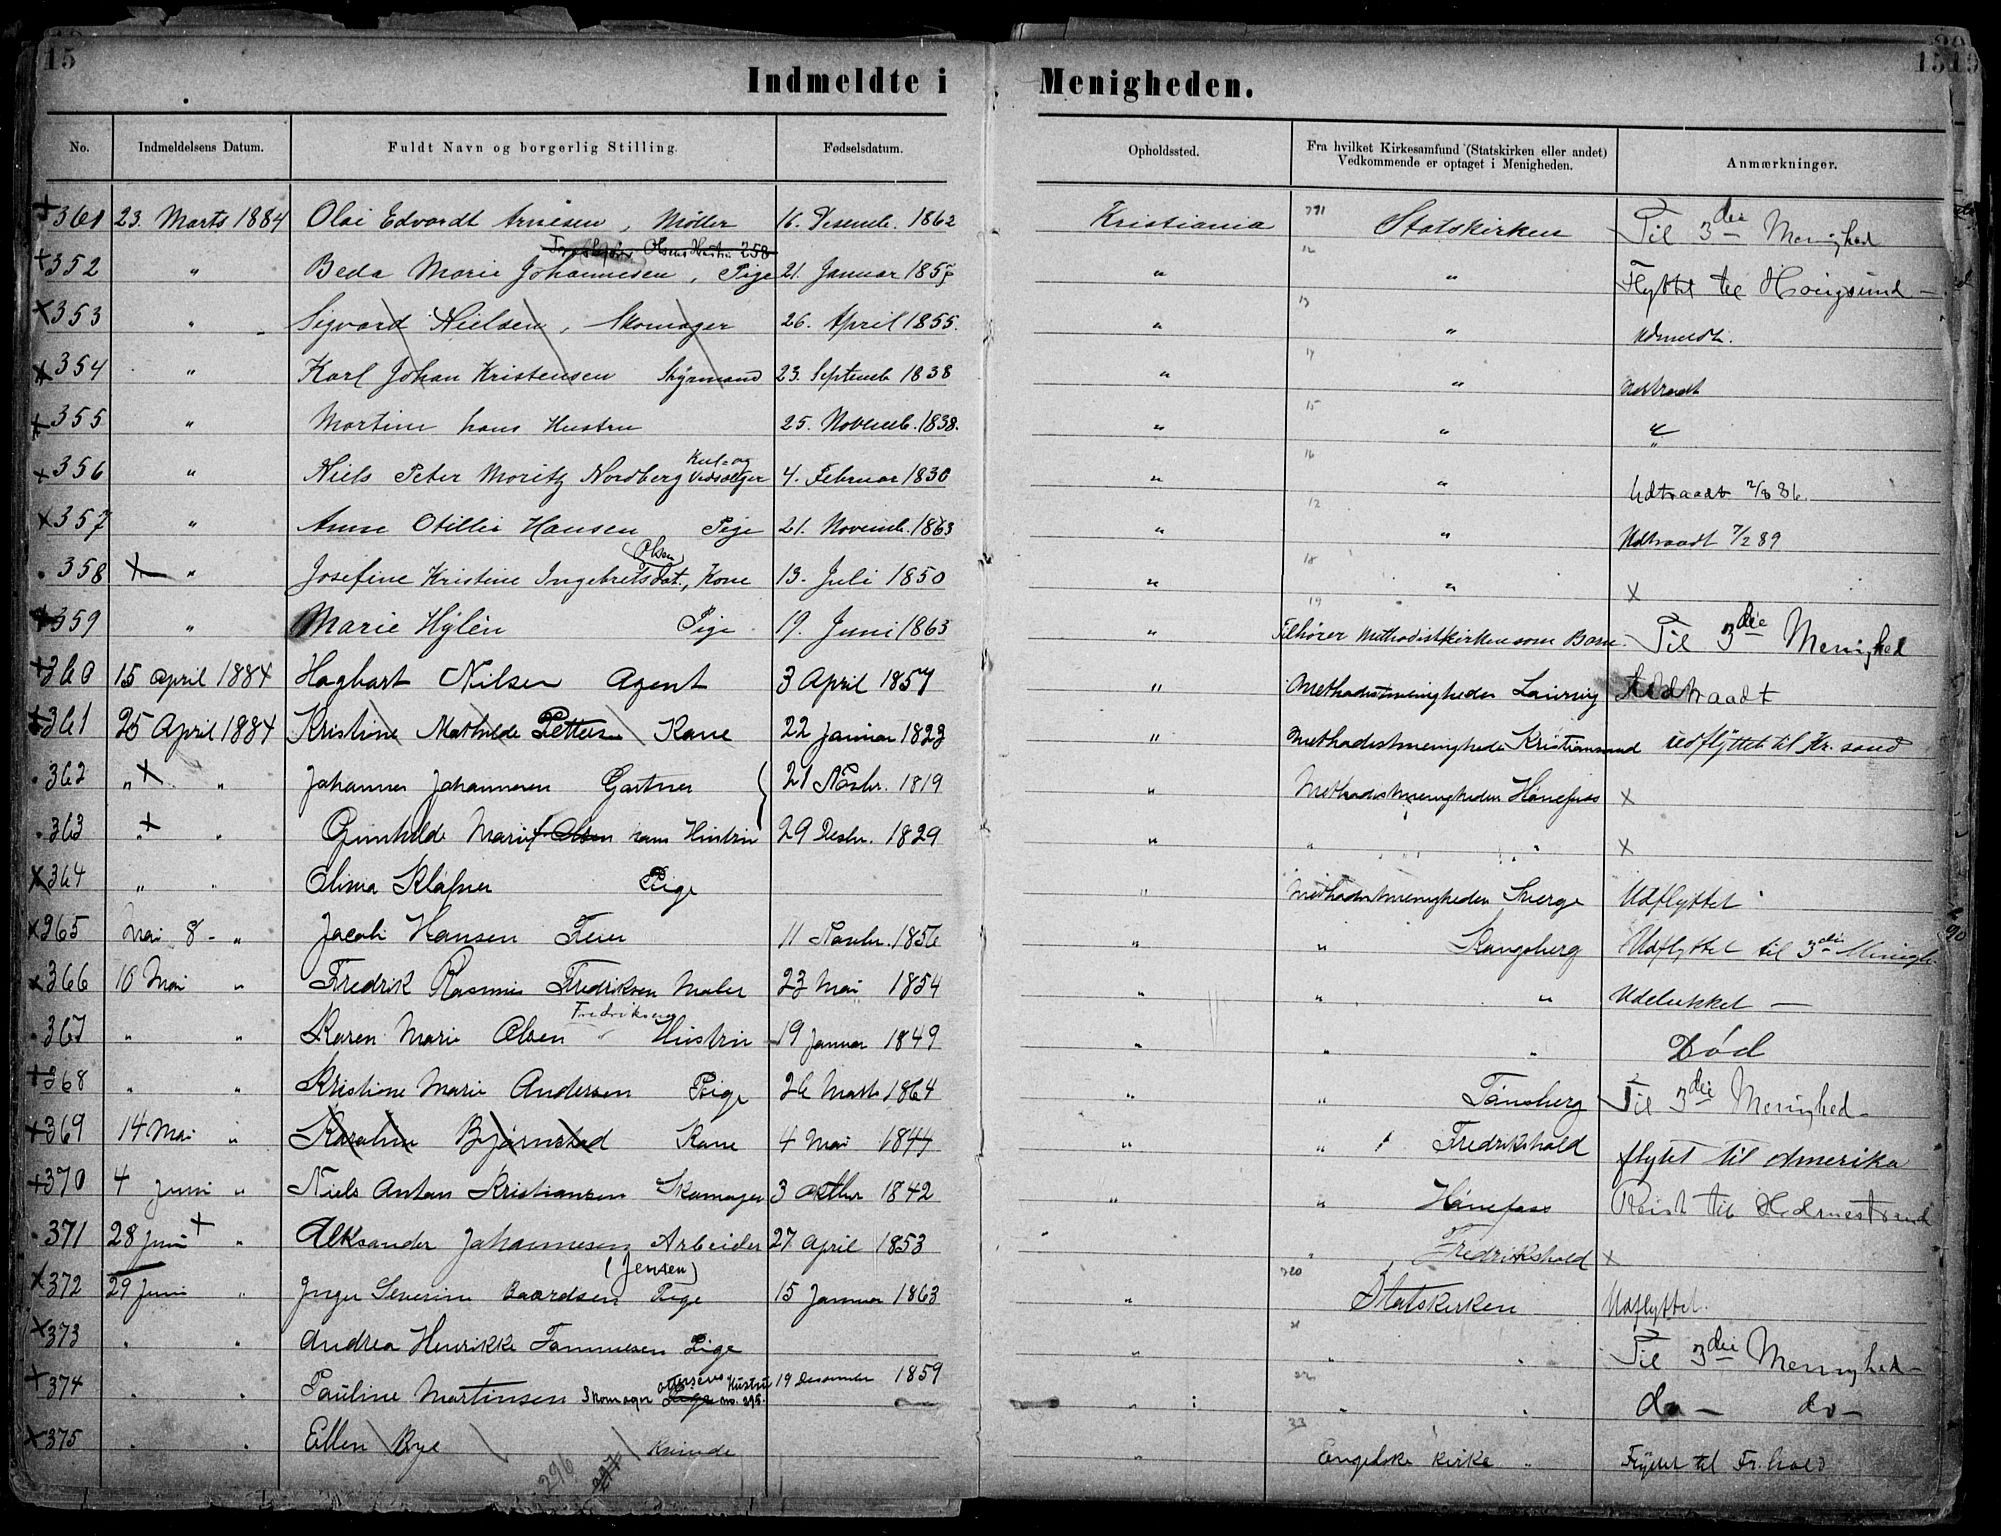 15
1515
Indmeldte i Menigheden.
No. Indmeldelsens Datum. Fuldt Navn og borgerlig Stilling. Fødselsdatum. Opholdssted. Fra hvilket Kirkesamfund (Statskirken eller andet) Vedkommende er optaget i Menigheden. Anmærkninger.
+ 361 23. Marts 1884 Olai Edvardt Arnesen, Møller 16. Desemb. 1862 Kristiania Statskirken Til 3die Menighed
Olsens Hustru 258
+ 352 " Beda Marie Johannesen, Pige 21. Januar 185 " 12 " Flyttet til
x 353 " Sigvard Nielsen, Skomager 26. April 1855. " 13 " Udmeldt.
x 354 " Karl Johan Kristensen Styrmand 23. Septemb 1838 " 14 " Udtraadt
x 355 " Martine hans Hustru 25. Novemb. 1838. " 15 " "
Kul- og
x 356 " Niels Peter Moritz Nordberg Vedsælger 4. Februar 1830 " 16 " Udtraadt 2/8 86.
x 357 " Anne Otillie Hansen Pige 21. Novemb. 1863 " " Udtraadt 7/2 89
(Olsen)
. 358 x " Josefine Kristine Ingebretsdat., Kone 13. Juli 1850 " 18 " x
+ 359 " Marie Hylén Pige 19. Juni 1863 " 19 Tilhører Methodistkirken som Barn. Til 3die Menighed
+ 360 15 April 1884 Hagbart Nilsen Agent 3 April 1857 " Methodistmenigheden Laurvig Udtraadt
+ 361 25 April 1884 Kristine Mathilde Petters Kone 22 Januar 1823 " Methodistmenighede Kristiansand udflyttet til Kr. sand
. 362 " x " Johannes Johannesen Gartner 21 Novbr. 1819 " Methodistmenigheden Hønefoss x
. 363 " + " Gunhilde Marie f. Olsen hans Hustru 29 Desbr. 1829 " " " x
x 364 " " Olina Klafner Pige " Methodistmenigheden Sverge Udflyttet
x 365 Mai 8 - " Jacob Hansen Feier 11 Novbr. 1856 " " Kongsberg Udflyttet til 3die Menigh.
x 366 10 Mai " Fredrik Rasmus Fredriksen Maler 23 Mai 1854 " " " Udelukket —
Fredriksen
. 367 " " Karen Marie Olsen Hustru 19 Januar 1849 " " " Død
+ 368 " " Kristine Marie Andersen Pige 26 Marts 1864 " " Tønsberg Til 3die Menighed -
+ 369 14 Mai " Karoline Bjørnstad Kone 4 Mai 1844 " " Fredrikshald flyttet til Amerika
+ 370 4 Juni " Niels Anton Kristiansen Skomager 3 Oktbr 1842 " " Hønefoss Reist til Holmestrand
. 371 28 Juni + " Alksander Johannesen Arbeider 27 April 1853 " " Fredrikshald x
(Jensen)
x 372 29 Juni " Inger Severine Baardsen Pige 15 Januar 1863 " 320 Statskirken Udflyttet.
x 373 " " Andrea Henrikke Tommesen Pige " 21 " " Til 3die Menighed -
+ 374 " " Pauline Martinsen Skomager Ottersens Hustru Pige no. 295. 19 Desember 1859 " " " do - do -
x 375 " " Ellen Bye Kvinde " 33 Engelske Kirke " Flyttet til Fr. hald
296 297